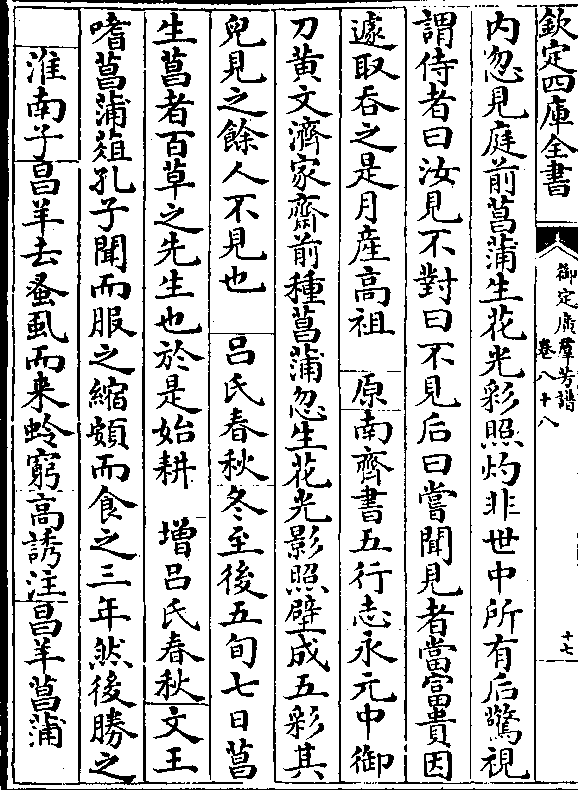 欽定四庫全書
御定廣羣芳譜
卷八十八
十七
内忽見庭前菖蒲生花光彩照灼非世中所有后驚視
謂侍者曰汝見不對曰不見后曰嘗聞見者當富貴因
遽取吞之是月産高祖 原南齊書五行志永元中御
刀黄文濟家齋前種菖蒲忽生花光影照壁成五彩其
兒見之餘人不見也 吕氏春秋冬至後五旬七日菖
生菖者百草之先生也於是始耕 增吕氏春秋文王
嗜菖蒲葅孔子聞而服之縮頞而食之三年然後勝之
淮南子昌羊去蚤虱而来蛉窮高誘注昌羊菖蒲